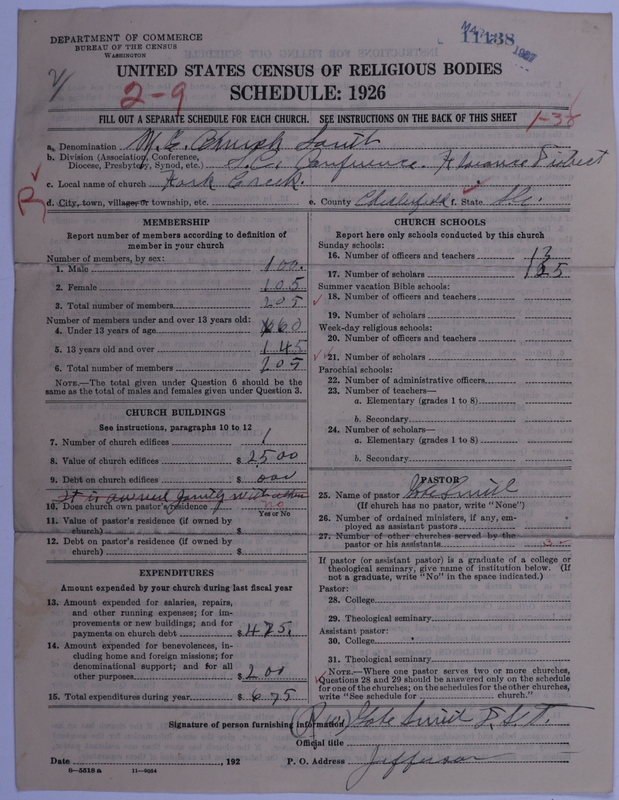 DEPARTMENT OF COMMERCE
BUREAU OF THE CENSUS
WASHINGTON
11138
UNITED STATES CENSUS OF RELIGIOUS BODIES
2-9
SCHEDULE: 1926
FILL OUT A SEPARATE SCHEDULE FOR EACH CHURCH. SEE INSTRUCTIONS ON THE BACK OF THIS SHEET
a. Denomination M. E. Church South
b. Division (Association, Conference, Diocese, Presbytery, Synod, etc.) S. C. Conference. Florence District
c. Local name of church Fork Creek.
d. City, town, village, or township, etc.
e. County Chesterfield f. State S.C.
MEMBERSHIP
Report number of members according to definition of
member in your church
Number of members, by sex:
1. Male 100.
2. Female 105
3. Total number of members 205
Number of members under and over 13 years old:
4. Under 13 years of age 60
5. 13 years old and over 145
6. Total number of members 205
NOTE.—The total given under Question 6 should be the
same as the total of males and females given under Question 3.
CHURCH BUILDINGS
See instructions, paragraphs 10 to 12
7. Number of church edifices 1
8. Value of church edifices $ 2500
9. Debt on church edifices $ 000
It is owned jointly with others
10. Does church own pastor's residence no
Yes or No
11. Value of pastor's residence (if owned by
church) $
12. Debt on pastor's residence (if owned by
church) $
EXPENDITURES
Amount expended by your church during last fiscal year
13. Amount expended for salaries, repairs,
and other running expenses; for im-
provements or new buildings; and for
payments on church debt $ 475.
14. Amount expended for benevolences, in-
cluding home and foreign missions; for
denominational support; and for all
other purposes $ 200
15. Total expenditures during year $ 675
CHURCH SCHOOLS
Report here only schools conducted by this church
Sunday schools:
16. Number of officers and teachers 13
17. Number of scholars 125
Summer vacation Bible schools:
18. Number of officers and teachers
19. Number of scholars
Week-day religious schools:
20. Number of officers and teachers
21. Number of scholars
Parochial schools:
22. Number of administrative officers
23. Number of teachers—
a. Elementary (grades 1 to 8)
b. Secondary
24. Number of scholars—
a. Elementary (grades 1 to 8)
b. Secondary
PASTOR
25. Name of pastor
(If church has no pastor, write "None")
26. Number of ordained ministers, if any, em-
ployed as assistant pastors
27. Number of other churches served by the
pastor or his assistants 3
If pastor (or assistant pastor) is a graduate of a college or
theological seminary, give name of institution below. (If
not a graduate, write "No" in the space indicated.)
Pastor:
28. College
29. Theological seminary
Assistant pastor:
30. College
31. Theological seminary
NOTE.—Where one pastor serves two or more churches,
Questions 28 and 29 should be answered only on the schedule
for one of the churches; on the schedules for the other churches,
write "See schedule for church."
Signature of person furnishing information (Rev)
Official title
Date , 192 P. O. Address Jefferson
8—5518 a 11—9064